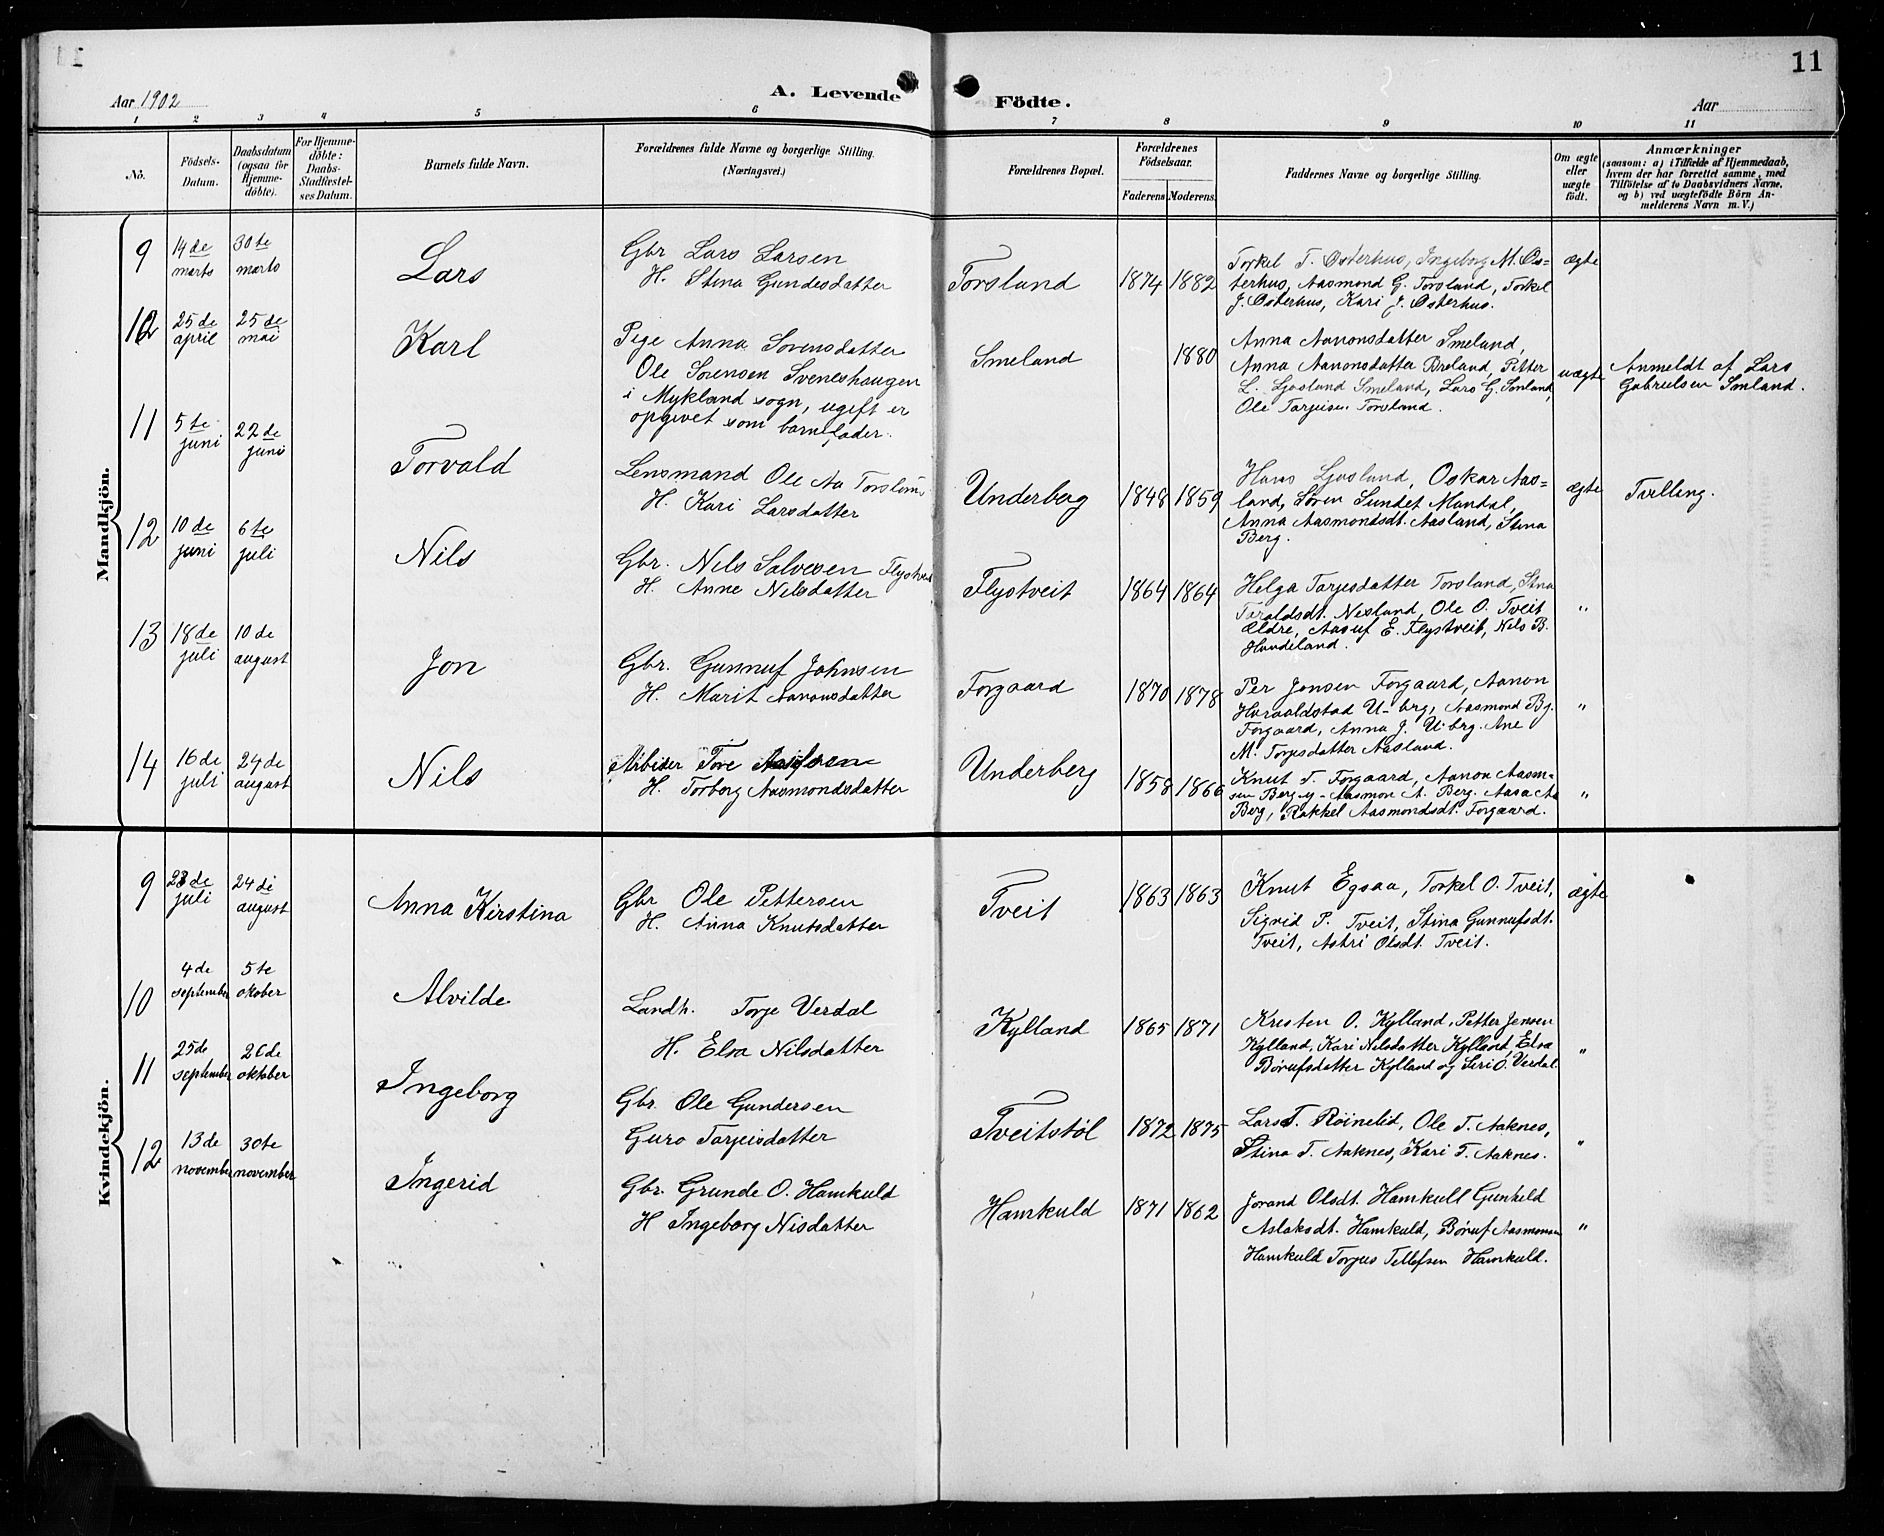 11
Aar 1902
A. Levende Födte.
Aar
1 2 3 4 5 6 7 8 9 10 11
No.
Födsels-Datum.
Daabsdatum (ogsaa for Hjemme-döbte).
For Hjemme-döbte: Daabs-Stadfæstel-ses Datum.
Barnets fulde Navn.
Forældrenes fulde Navne og borgerlige Stilling. (Næringsvei.)
Forældrenes Bopæl.
Forældrenes Födselsaar.
Faderens Moderens.
Faddernes Navne og borgerlige Stilling.
Om ægte eller uægte födt.
Anmærkninger
(saasom: a) i Tilfælde af Hjemmedaab,
hvem der har forrettet samme, med
Tilföielse af to Daabsvidners Navne,
og b) ved uægtefödte Börn An-
melderens Navn m. V.)
Mandkjön.
9 14de marts 30te marts Lars
Gbr Lars Larsen
H. Stina Gundesdatter
Torsland 1874 1882
Torkel T. Østerhus, Ingeborg M. Øs-
terhus, Aasmond G. Torsland, Torkel
J. Østerhus, Kari J. Østerhus.
ægte
10 25de april 25de mai Karl
Pige Anna Sorensdatter
Ole Sørensen Sveneshaugen
i Mykland sogn, ugift er
opgivet som barnefader.
Smeland 1880
Anna Aanonsdatter Smeland,
Anna Aanonsdatter Breland, Petter
L. Ljosland Smeland, Lars G. Smland,
Ole Tarjeisen Torsland.
uægte
Anmeldt af Lars
Gabrielsen Smland.
11 5te juni 22de juni Torvald
Lensmand Ole Aa Torsland
H. Kari Larsdatter
Underberg 1848 1859
Hans Ljosland, Oskar Aas-
land, Søren Sundet Mandal,
Anna Aasmondsdt. Aasland, Stina
Berg.
ægte
Tvilling.
12 10de juni 6te juli Nils
Gbr. Nils Salvesen Flystveit
H. Anne Nilsdatter
Flystveit 1864 1864
Helga Tarjesdatter Torsland, Stina
Taraldsdt. Nesland, Ole O. Tveit
Ældre, Aasuf E. Flystveit, Nils B.
Hundeland.
"
13 18de juli 10de august Jon
Gbr. Gunnuf Johnsen
H. Marit Aanonsdatter
Forgaard 1870 1878
Per Jensen Forgaard, Aanon
Haraaldstad U-brg, Aasmond Bj.
Forgaard, Anna J. U-brg. Ane
M. Torjesdatter Aasland.
"
14 16de juli 24de august Nils
Arbeider Tore
H. Torborg Aasmondsdatter
Underberg 1858 1866
Knut T. Forgaard, Aanon Aasm-
sen Berg-y- Aasmon A. Berg. Aasa Aa
Berg, Rakkel Aasmondsdt. Forgaard.
"
Kvindekjön.
9 23de juli 24de august Anna Kirstina
Gbr Ole Pettersen
H. Anna Knutsdatter
Tveit 1863 1863
Knut Egsaa, Torkel O. Tveit,
Sigrid P. Tveit, Stina Gunnufsdt.
Tveit, Astri Olsdt. Tveit.
ægte
10 4de september 5te oktober Alvilde
Landh. Torje Verdal
H. Elva Nilsdatter
Kylland 1865 1871
Kresten O. Kylland, Petter Jensen
Kylland, Kari Nilsdatter Kylland, Elva
Børufsdatter Kylland og Siri O. Verdal
"
11 25de september 26de oktober Ingeborg
Gbr. Ole Gundersen
Guro Tarjeisdatter
Tveitstøl 1872 1875
Lars T. Röinelid, Ole T. Aaknes,
Stina T. Aaknes, Kari T. Aaknes.
"
12 13de november 30te november Ingerid
Gbr. Grunde O. Hamkuld
H Ingeborg Nisdatter
Hamkuld 1871 1862
Jorand Olsdt. Hamkull Gunheld
Aslaksdt. Hamkuld, Børuf Aasmonsen
Hamkuld Torjus Tellefsen Hamkuld.
"